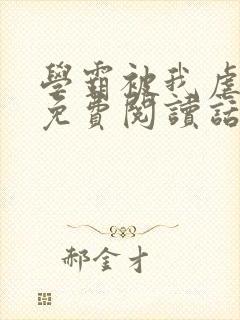 學霸被我虐
免費閱讀話
郝金才